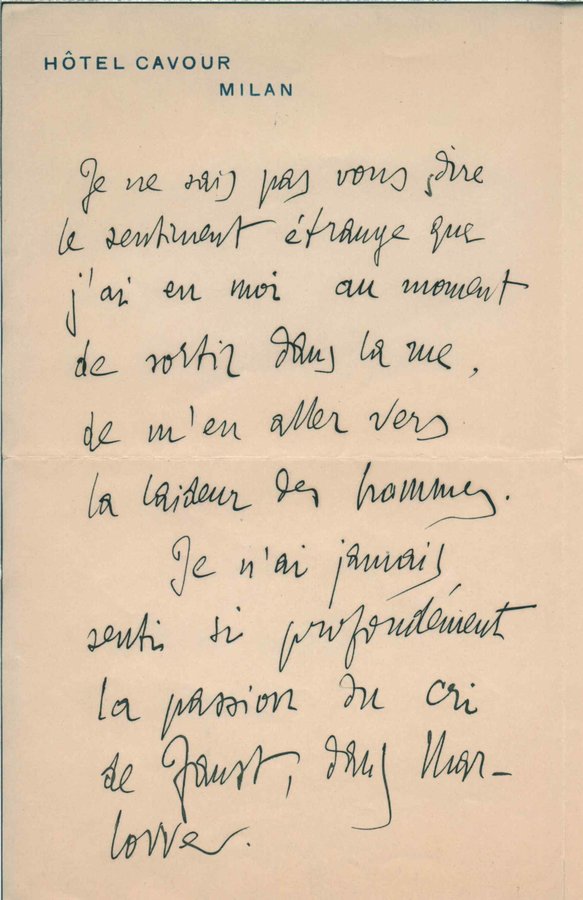 HÔTEL CAVOUR
MILAN
Je ne sais pas vous dire
le sentiment étrange que
j'ai en moi au moment
de sortir dans la rue,
de m'en aller vers
la laideur des hommes.
Je n'ai jamais
senti si profondément
la passion du cri
de Faust, dans Mar-
lowe.